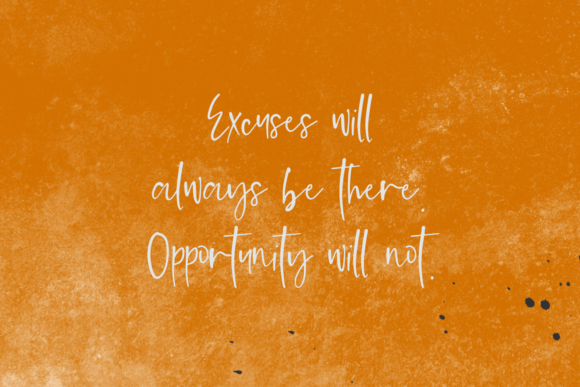 Excuses will
always be there.
Opportunity will not.